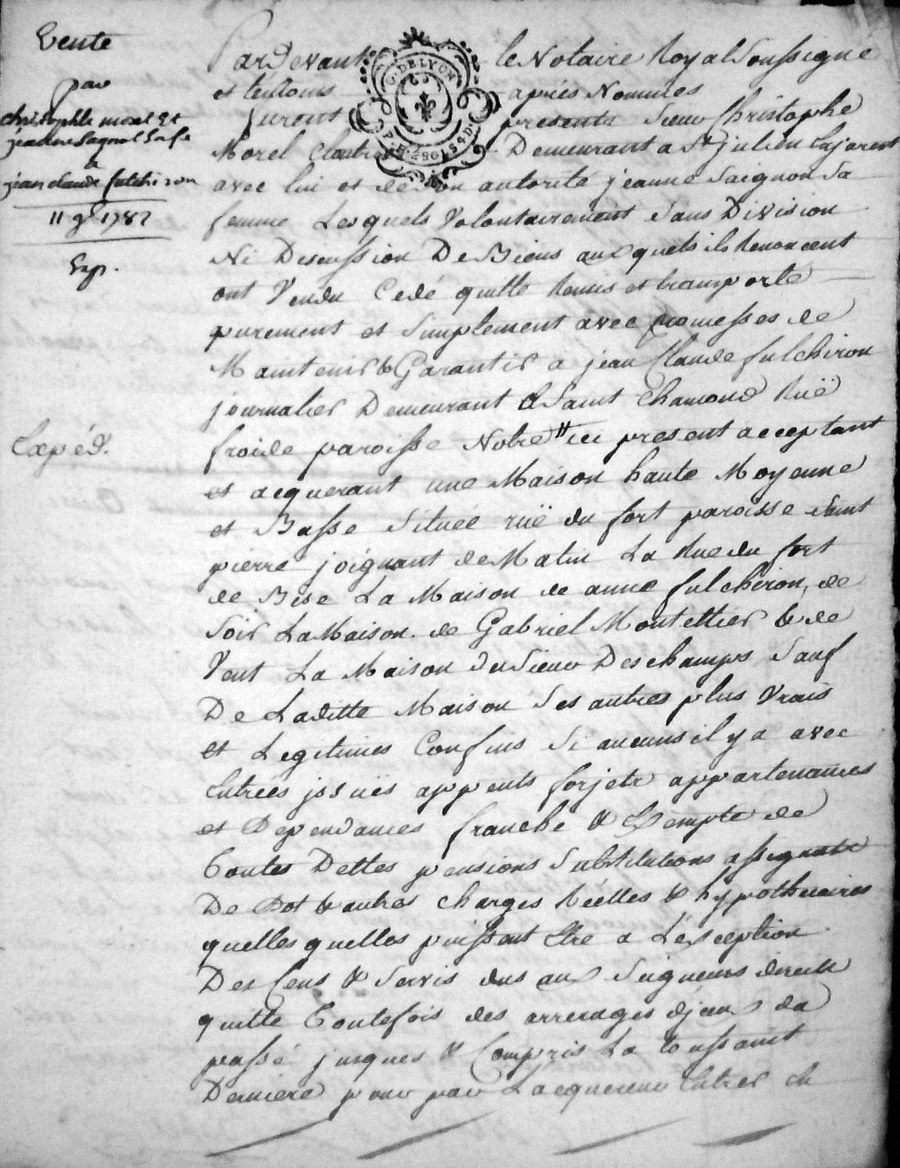 Vente
par
christophle morel Et
jeanne Sagnol Sa fe
a
jean claude fulchiron
11 9bre 1782
Exp.
Expéd.
G. DE LYON
Pardevant le Notaire Royal Soussigne
et témoins après Nommes
furent presents Sieur Christophe
Morel Demeurant a St julien
avec lui et de son autorité jeanne Saignon Sa
femme Lesquels Volontairement Sans Division
Ni Discussion De Biens auxquels ils Renoncent
ont Vendu Cedé quitté Remis et transporte
purement et Simplement avec promesses de
Maintenir & Garantir a jean Claude fulchiron
journalier Demeurant a Saint Chamond Ruë
froide paroisse Notre ici present acceptant
et acquerant une Maison haute Moyenne
et Basse Située ruë du fort paroisse Saint
pierre joignant de Matin La Rue du fort
de Bise La Maison de anne fulchiron, de
Soir La Maison de Gabriel Montellier & de
Vent La Maison du Sieur Deschamps Sauf
De Laditte Maison Ses autres plus Vrais
et Legitimes Confins Si aucuns il y a avec
Entrées jssuës appents forjets appartenances
et Dependances franche & Exempte de
Toutes Dettes pensions Substitutions assignats
De Dot & autres charges Réelles & hypothecaires
quelles quelles puissent Etre a L'exception
Des Cens & Servis dus aux Seigneurs directs
quitte Toutefois des arrerages d'jceux du
passé jusques & Compris La toussaint
Derniere pour par Lacquereur Entrer en